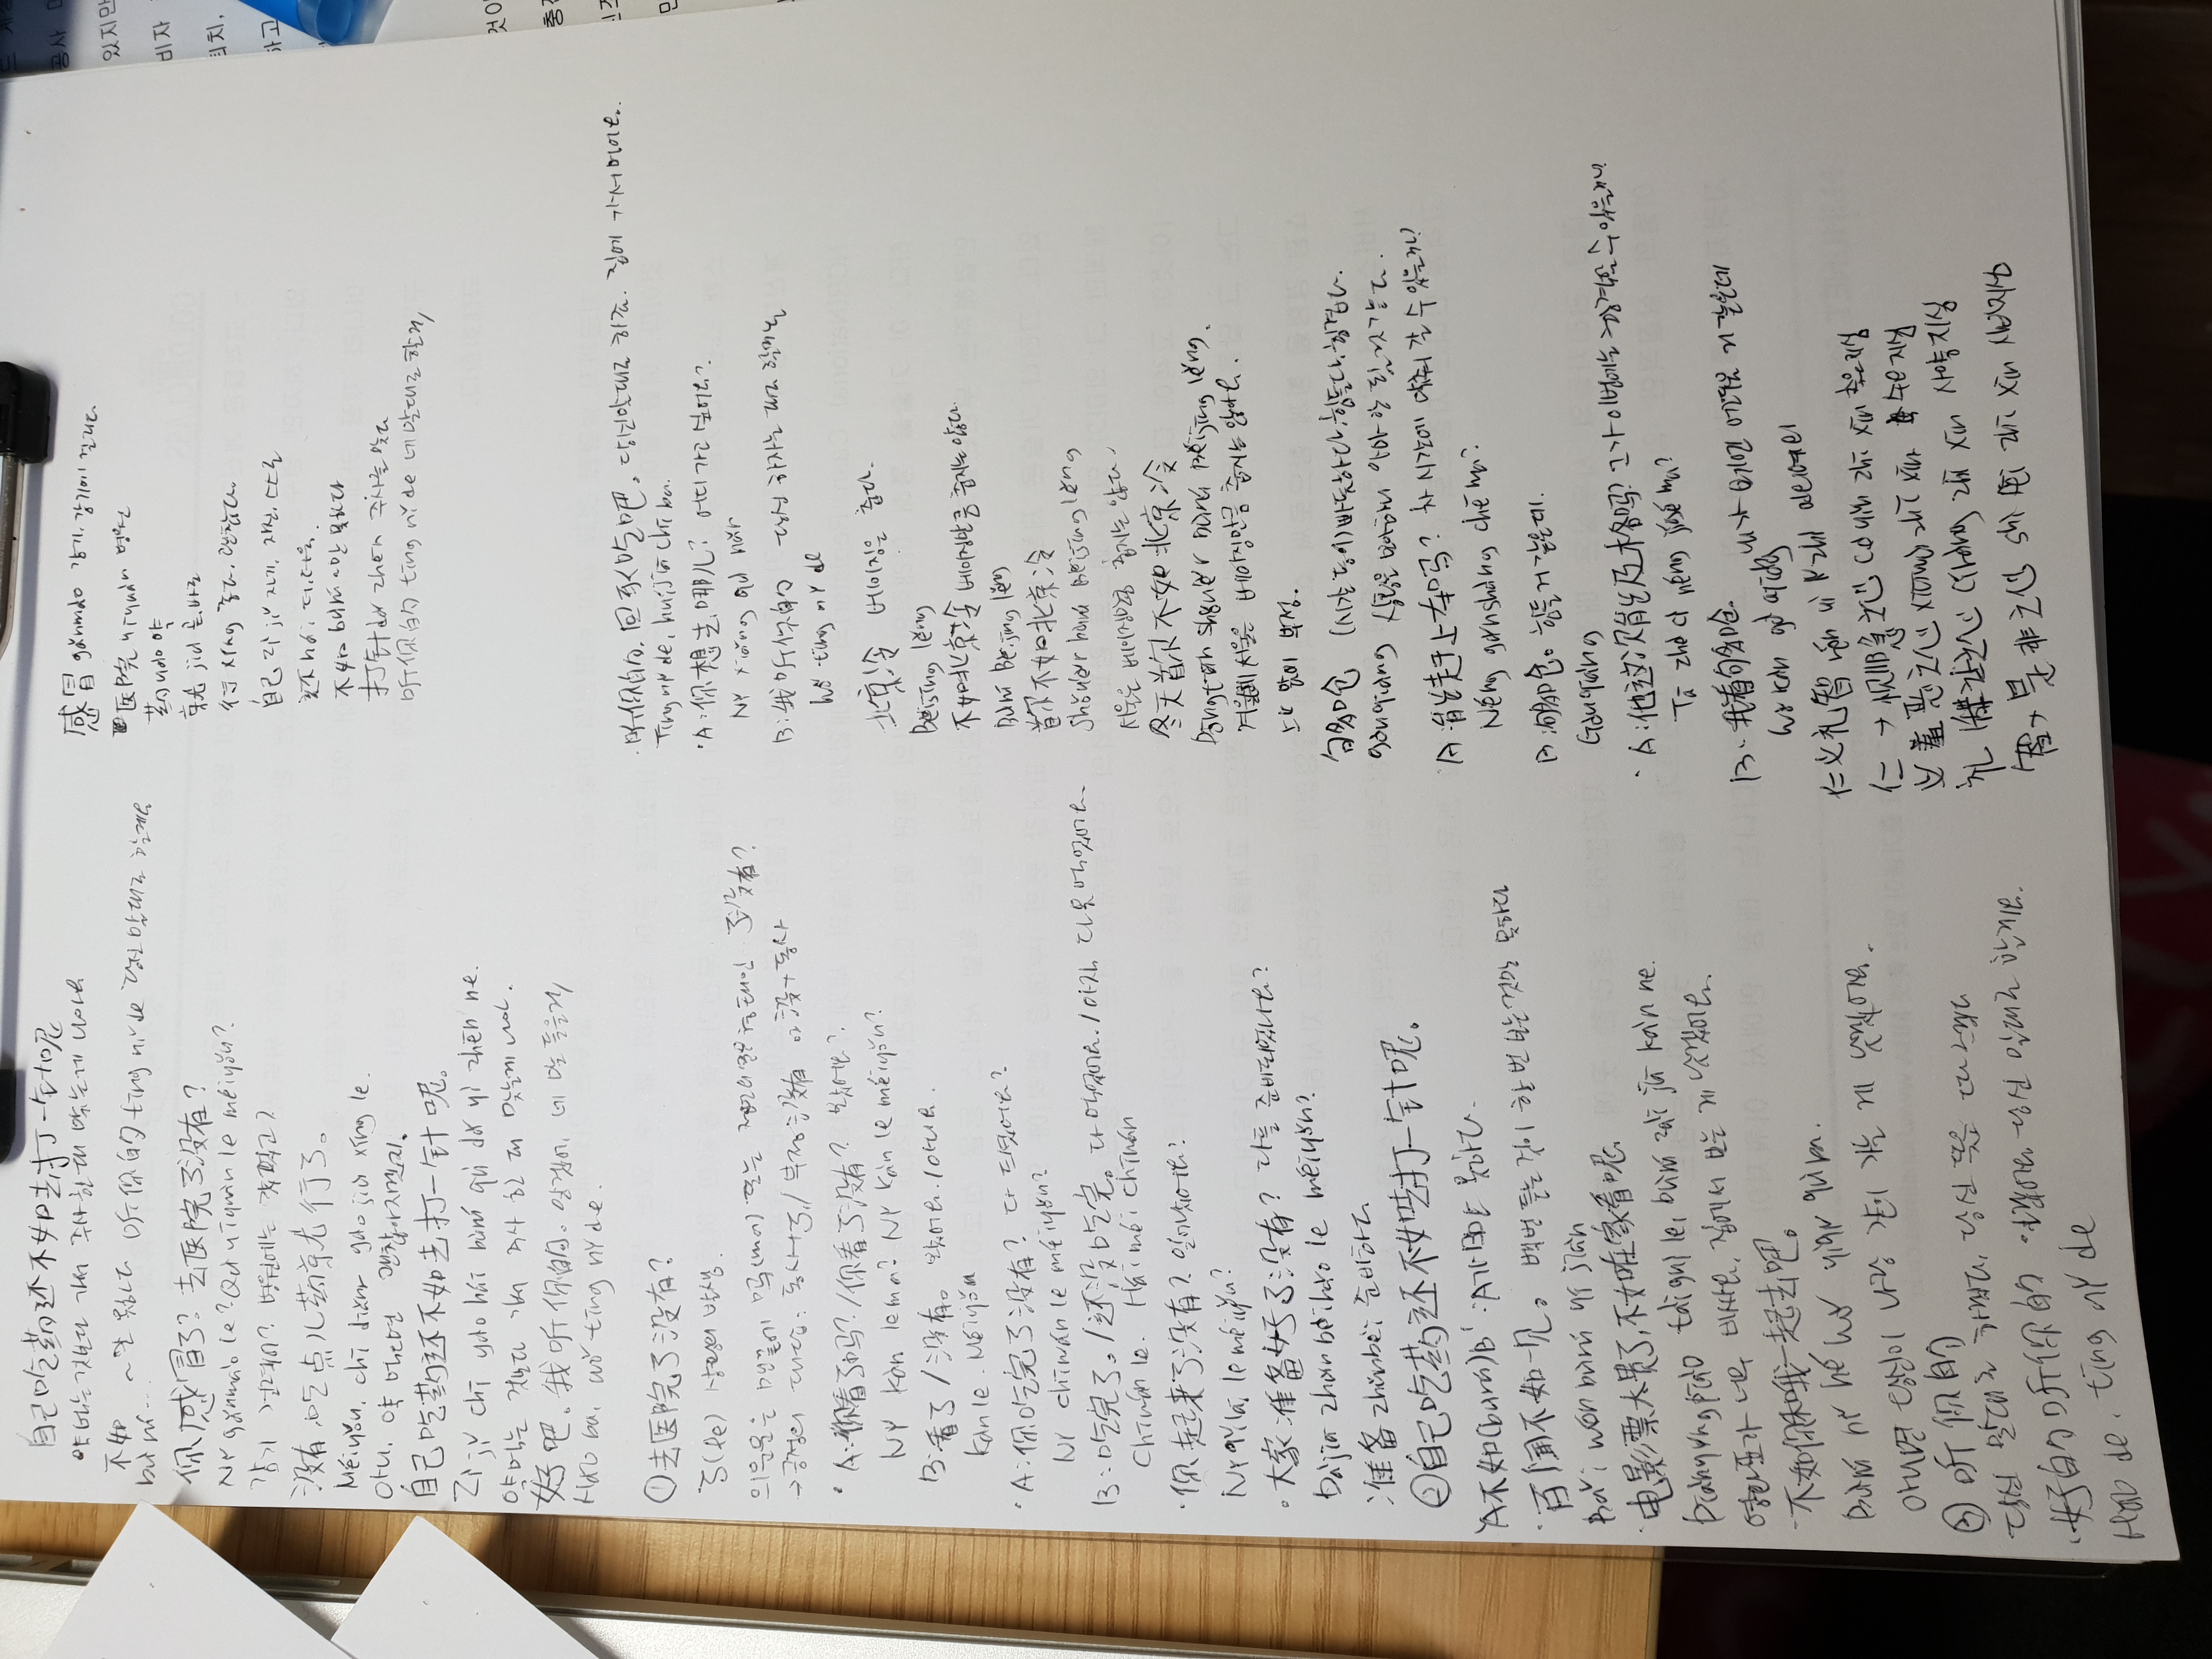 自己吃药还不如去打一针呢
약 먹는 것보다 가서 주사 한 대 맞는게 나아요
不如 ~만 못하다 听你的 tīng nǐ de 당신 말대로 할게요
bùrú...
你感冒了? 去医院了没有?
Nǐ gǎnmào le? Qù yīyuàn le méiyǒu?
감기 걸렸어? 병원에는 갔고?
没有, 吃点儿药就行了。
Méiyǒu, chī diǎnr yào jiù xíng le.
아니, 약 먹으면 괜찮아지겠지.
自己吃药还不如去打一针呢。
Zì jǐ chī yào hái bùrú qù dǎ yì zhēn ne.
약먹는 것보다 가서 주사 한 대 맞는게 나아.
好吧, 我听你的. 알겠어, 네 말 들을게,
Hǎo ba, wǒ tīng nǐ de.
①去医院了没有?
了(le) 상황의 발생.
의문문은 문장끝에 吗(ma) 또는 정반의문문형태인 了没有?
→긍정의 대답: 동사+了 / 부정 没有 or 没+동사
·A:你看了吗? /你看了没有? 봤어요?
Nǐ kàn le ma? Nǐ kàn le méiyǒu?
B:看了 / 没有。 봤어요. /아니요.
Kàn le. Méiyǒu
·A:你吃完了没有? 다 드셨어요?
Nǐ chīwán le méiyǒu?
B:吃完了。/还没吃完。 다 먹었어요. /아직 다 못 먹었어요.
Chīwán le. Hái méi chīwán
·你起来了没有? 일어났어요?
Nǐ qǐlái le méiyǒu?
·大家准备好了没有? 다들 준비되었나요?
Dàjiā zhǔnbèihǎo le méiyǒu?
准备 zhǔnbèi 준비하다
②自己吃药还不如去打一针呢。
'A不如(bùrú)B' :A가 B만 못하다.
·百闻不如一见。 백번 듣는 것이 한 번 보는것만 못하다
Bǎi wén bùrú yí jiàn
·电影票太贵了,不如在家看呢.
Diànyǐngpiào tài guì le, bùrú zài jiā kàn ne.
영화표가 너무 비싸요, 집에서 보는 게 낫겠어요.
·不如你和我一起去吧。
Bùrú nǐ hé wǒ yìqǐ qù ba.
아니면 당신이 나랑 같이 가는 게 낫겠어요.
③ 听你的
당신 말대로 하겠다, 당신 뜻을 따르겠다
·好的 听你的 알겠어요 당신 말대로 할게요.
Hǎo de, tīng nǐ de
感冒 gǎnmào 감기, 감기에 걸리다.
医院 yīyuàn 병원
药 yào 약
就 jiù 곧, 바로
行 xíng 좋다, 괜찮다.
自己 zì jǐ 자기, 자신, 스스로
还 hái 더, 더욱.
不如 bùrú ~만 못하다
打针 dǎ zhēn 주사를 맞다
听你的 tīng nǐ de 네 말대로 할게,
·听你的, 回家吃吧。 당신말대로 하죠. 집에 가서 먹어요.
Tīng nǐ de, huíjiā chī ba.
·A:你想去哪儿? 어디 가고 싶어요?
Nǐ xiǎng qù nǎr
B:我听你的 당신 하자는 대로 할게요
Wǒ tīng nǐ de
北京冷 베이징은 춥다.
Běijīng lěng
不如北京冷 베이징만큼 춥지는 않다.
Bùrú Běijīng lěng
首尔不如北京冷
Shǒu'ěr bùrú Běijīng lěng
서울은 베이징만큼 춥지는 않다.
冬天首尔不如北京冷
Dōngtiān Shǒu'ěr bùrú Běijīng lěng.
겨울에 서울은 베이징만큼 춥지는 않아요.
够呛 (시간 등이) 빠듯하다, 힘들다, 힘겹다.
gòuqiàng 상황을 보아하니 아마 안 될 것 같다.
A:能赶上车吗? 차 시간에 맞춰 갈 수 있을까?
Néng gǎnshàng chē ma?
B:够呛。 힘들 거 같은데.
Gòuqiàng
·A:他这次能及格吗? 그가 이번에는 합격할 수 있을까?
Tā zhè cì néng jígé ma?
B:我看够呛. 내가 보기엔 어려울 거 같은데
仁义礼智 rén yì lǐ zhì 인의예지
仁 → 恻隐之心 cè yǐn zhī xīn 측은지심
义 羞恶之心 xiūwù zhī xīn 수오지심
礼 辞让之心 círàng zhī xīn 사양지심
智→ 是非之心 shì fēi zhī xīn 시비지심